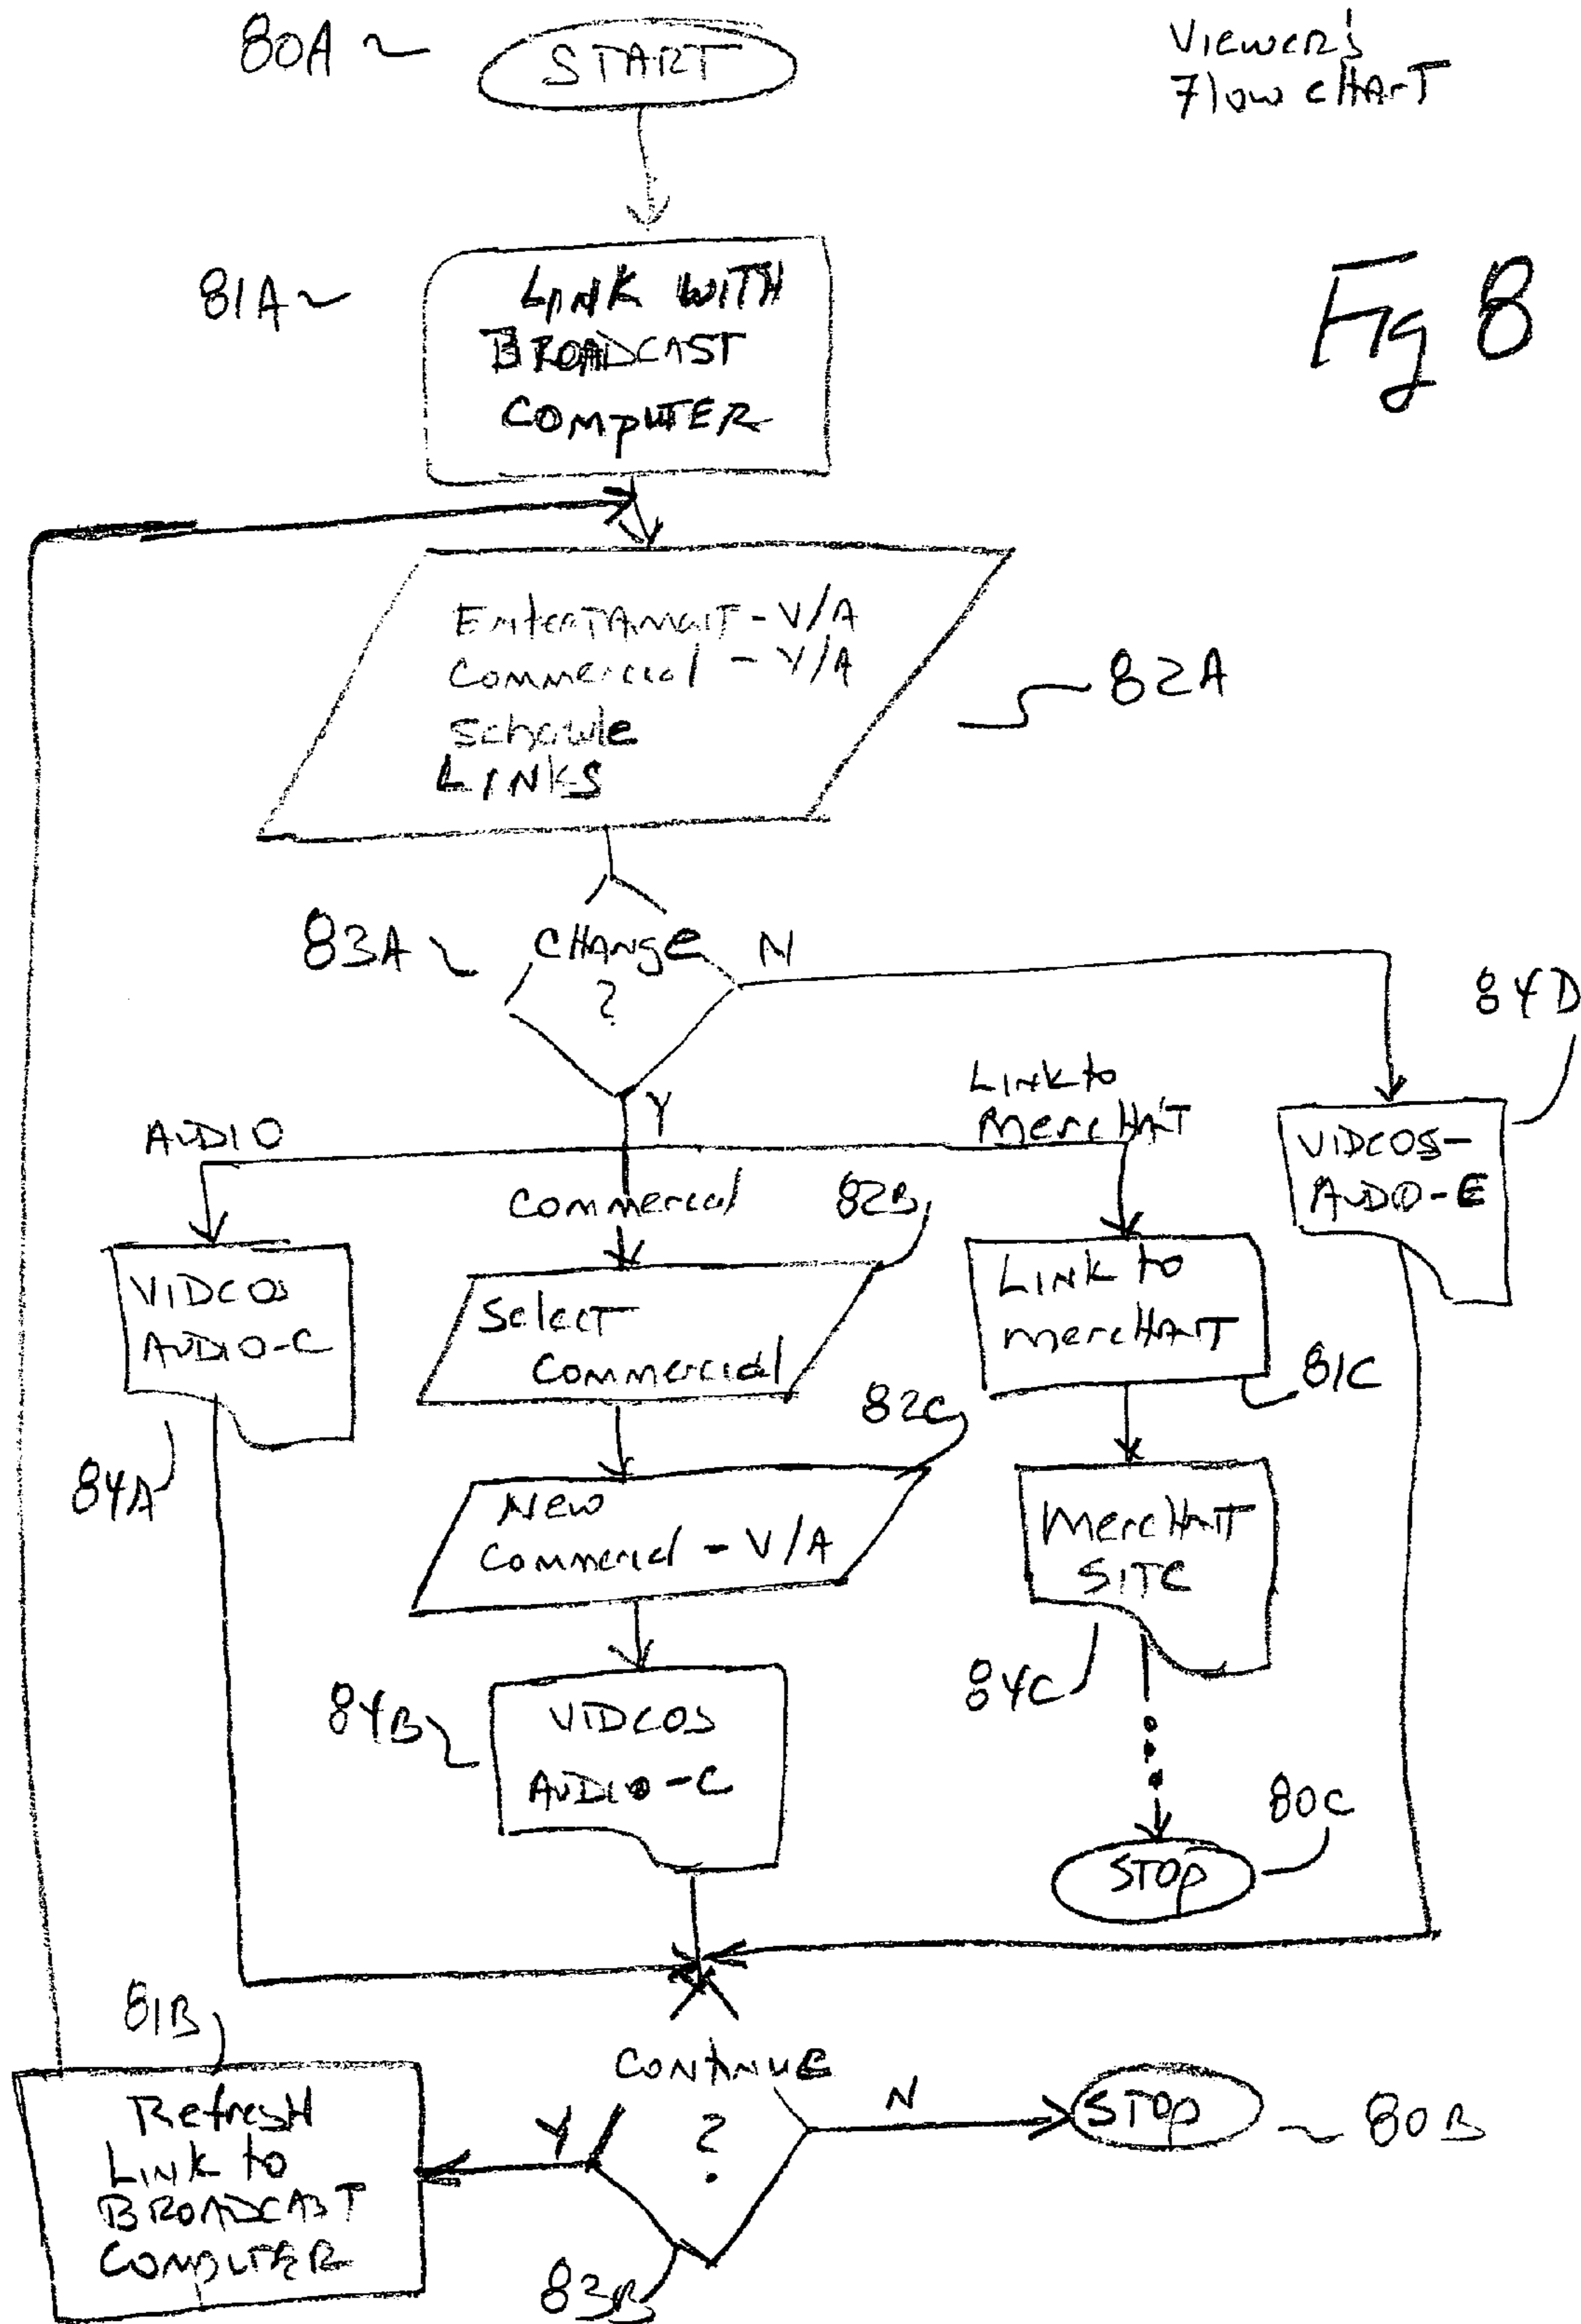 80A
START
Viewer's
Flow chart
81A
LINK WITH
BROADCAST
COMPUTER
Fig 8
Entertament - V/A
Commercial - V/A
Schedule
LINKS
82A
83A
CHANGE
?
N
84D
Y
AUDIO
Link to
MercHAnT
VIDEOS-
AUDIO-E
Commercial
82B
VIDEOS
AUDIO-C
Select
Commercial
Link to
mercHAnT
81C
82C
84A
New
Commercial - V/A
MercHAnT
SITE
84B
VIDEOS
AUDIO-C
84C
80C
STOP
81B
CONTINUE
?
Y
N
STOP
80B
RefresH
Link to
BROADCAST
COMPUTER
83B